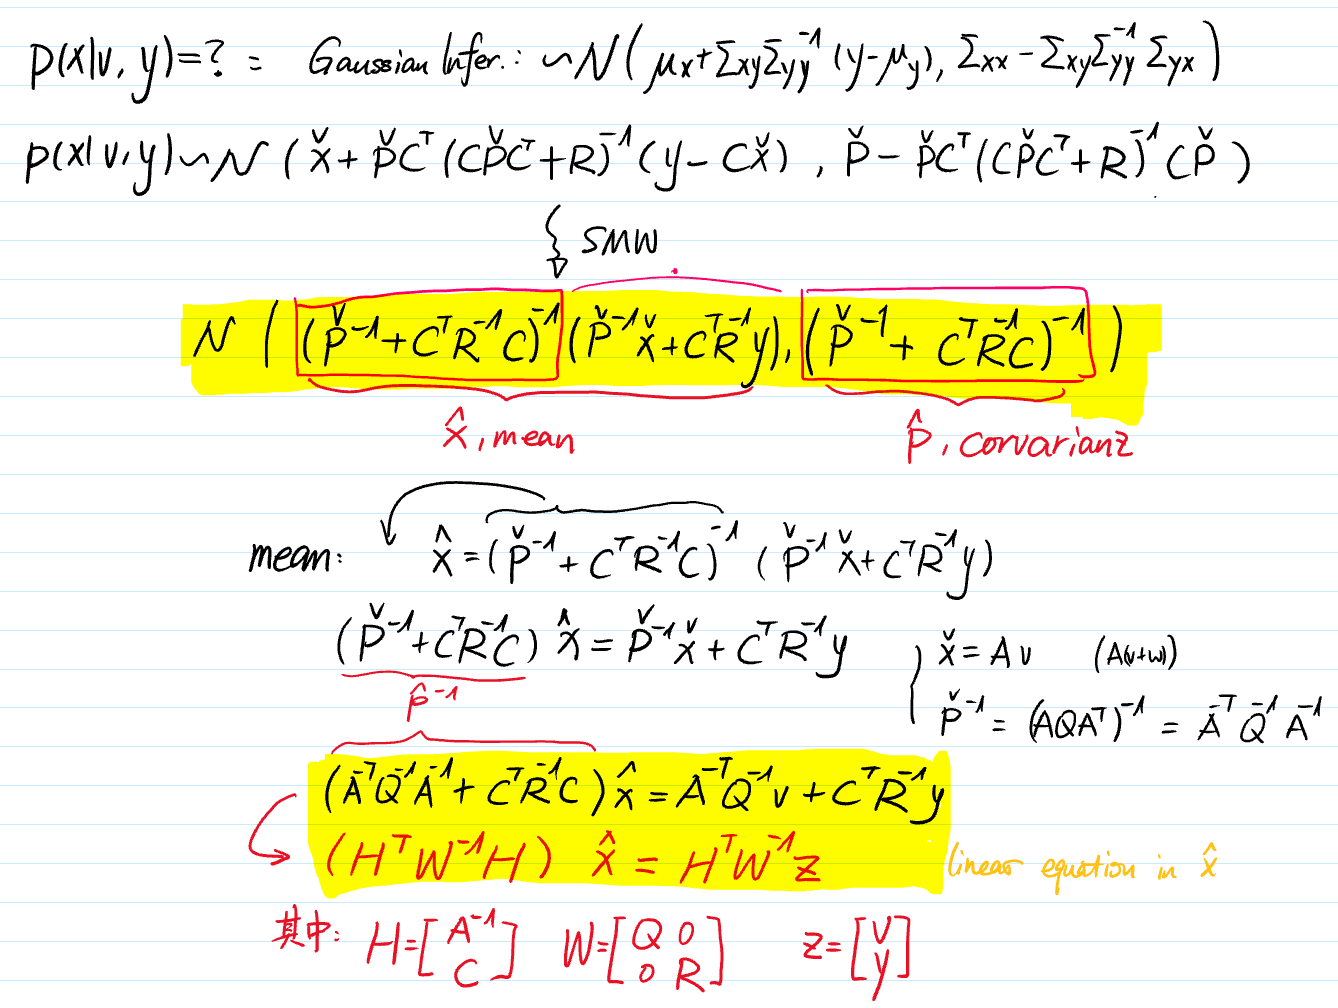 p(x|v, y)=? = Gaussian Infer.: ~N(μx+ΣxyΣyy⁻¹(y-μy), Σxx-ΣxyΣyy⁻¹Σyx)
p(x|v,y)~N(x̌+P̌Cᵀ(CP̌Cᵀ+R)⁻¹(y-Cx̌), P̌-P̌Cᵀ(CP̌Cᵀ+R)⁻¹CP̌)
SMW
N((P̌⁻¹+CᵀR⁻¹C)⁻¹(P̌⁻¹x̌+CᵀR⁻¹y), (P̌⁻¹+CᵀR⁻¹C)⁻¹)
x̂, mean
P̂, corvarianz
mean: x̂=(P̌⁻¹+CᵀR⁻¹C)⁻¹(P̌⁻¹x̌+CᵀR⁻¹y)
(P̌⁻¹+CᵀR⁻¹C) x̂=P̌⁻¹x̌+CᵀR⁻¹y
P̂⁻¹
x̌=Av (A(v+w))
P̌⁻¹=(AQAᵀ)⁻¹=A⁻ᵀQ⁻¹A⁻¹
(A⁻ᵀQ⁻¹A⁻¹+CᵀR⁻¹C)x̂=A⁻ᵀQ⁻¹v+CᵀR⁻¹y
(HᵀW⁻¹H) x̂=HᵀW⁻¹z
linear equation in x̂
其中: H=[A⁻¹ C] W=[Q 0 0 R] z=[v y]